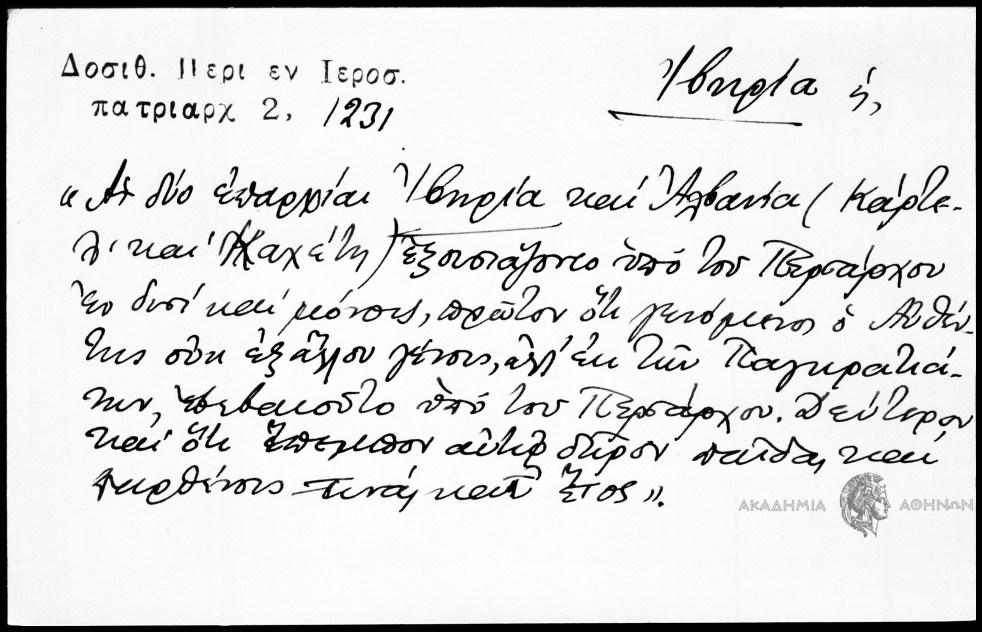 Δοσιθ. Περι εν Ιεροσ.
πατριαρχ 2, 1231
Ἰβηρία ἡ,
« Αἱ δύο ἐπαρχίαι Ἰβηρία καὶ Ἀλβανία ( Κάρτε-
λι καὶ Καχέτη ) ἐξουσιάζοντο ὑπὸ τοῦ Περσάρχου
ἐν δυσὶ καὶ μόνοις, πρῶτον ὅτι γενόμενος ὁ Αὐθέν-
της οὐκ ἐξ ἄλλου γένους, ἀλλ' ἐκ τῶν Παγκρατιά-
των, ἐβεβαιοῦτο ὑπὸ τοῦ Περσάρχου. Δεύτερον
καὶ ὅτι ἔπεμπον αὐτῷ δῶρον παῖδας καὶ
παρθένους τινὰς κατ' ἔτος ».
ΑΚΑΔΗΜΙΑ ΑΘΗΝΩΝ